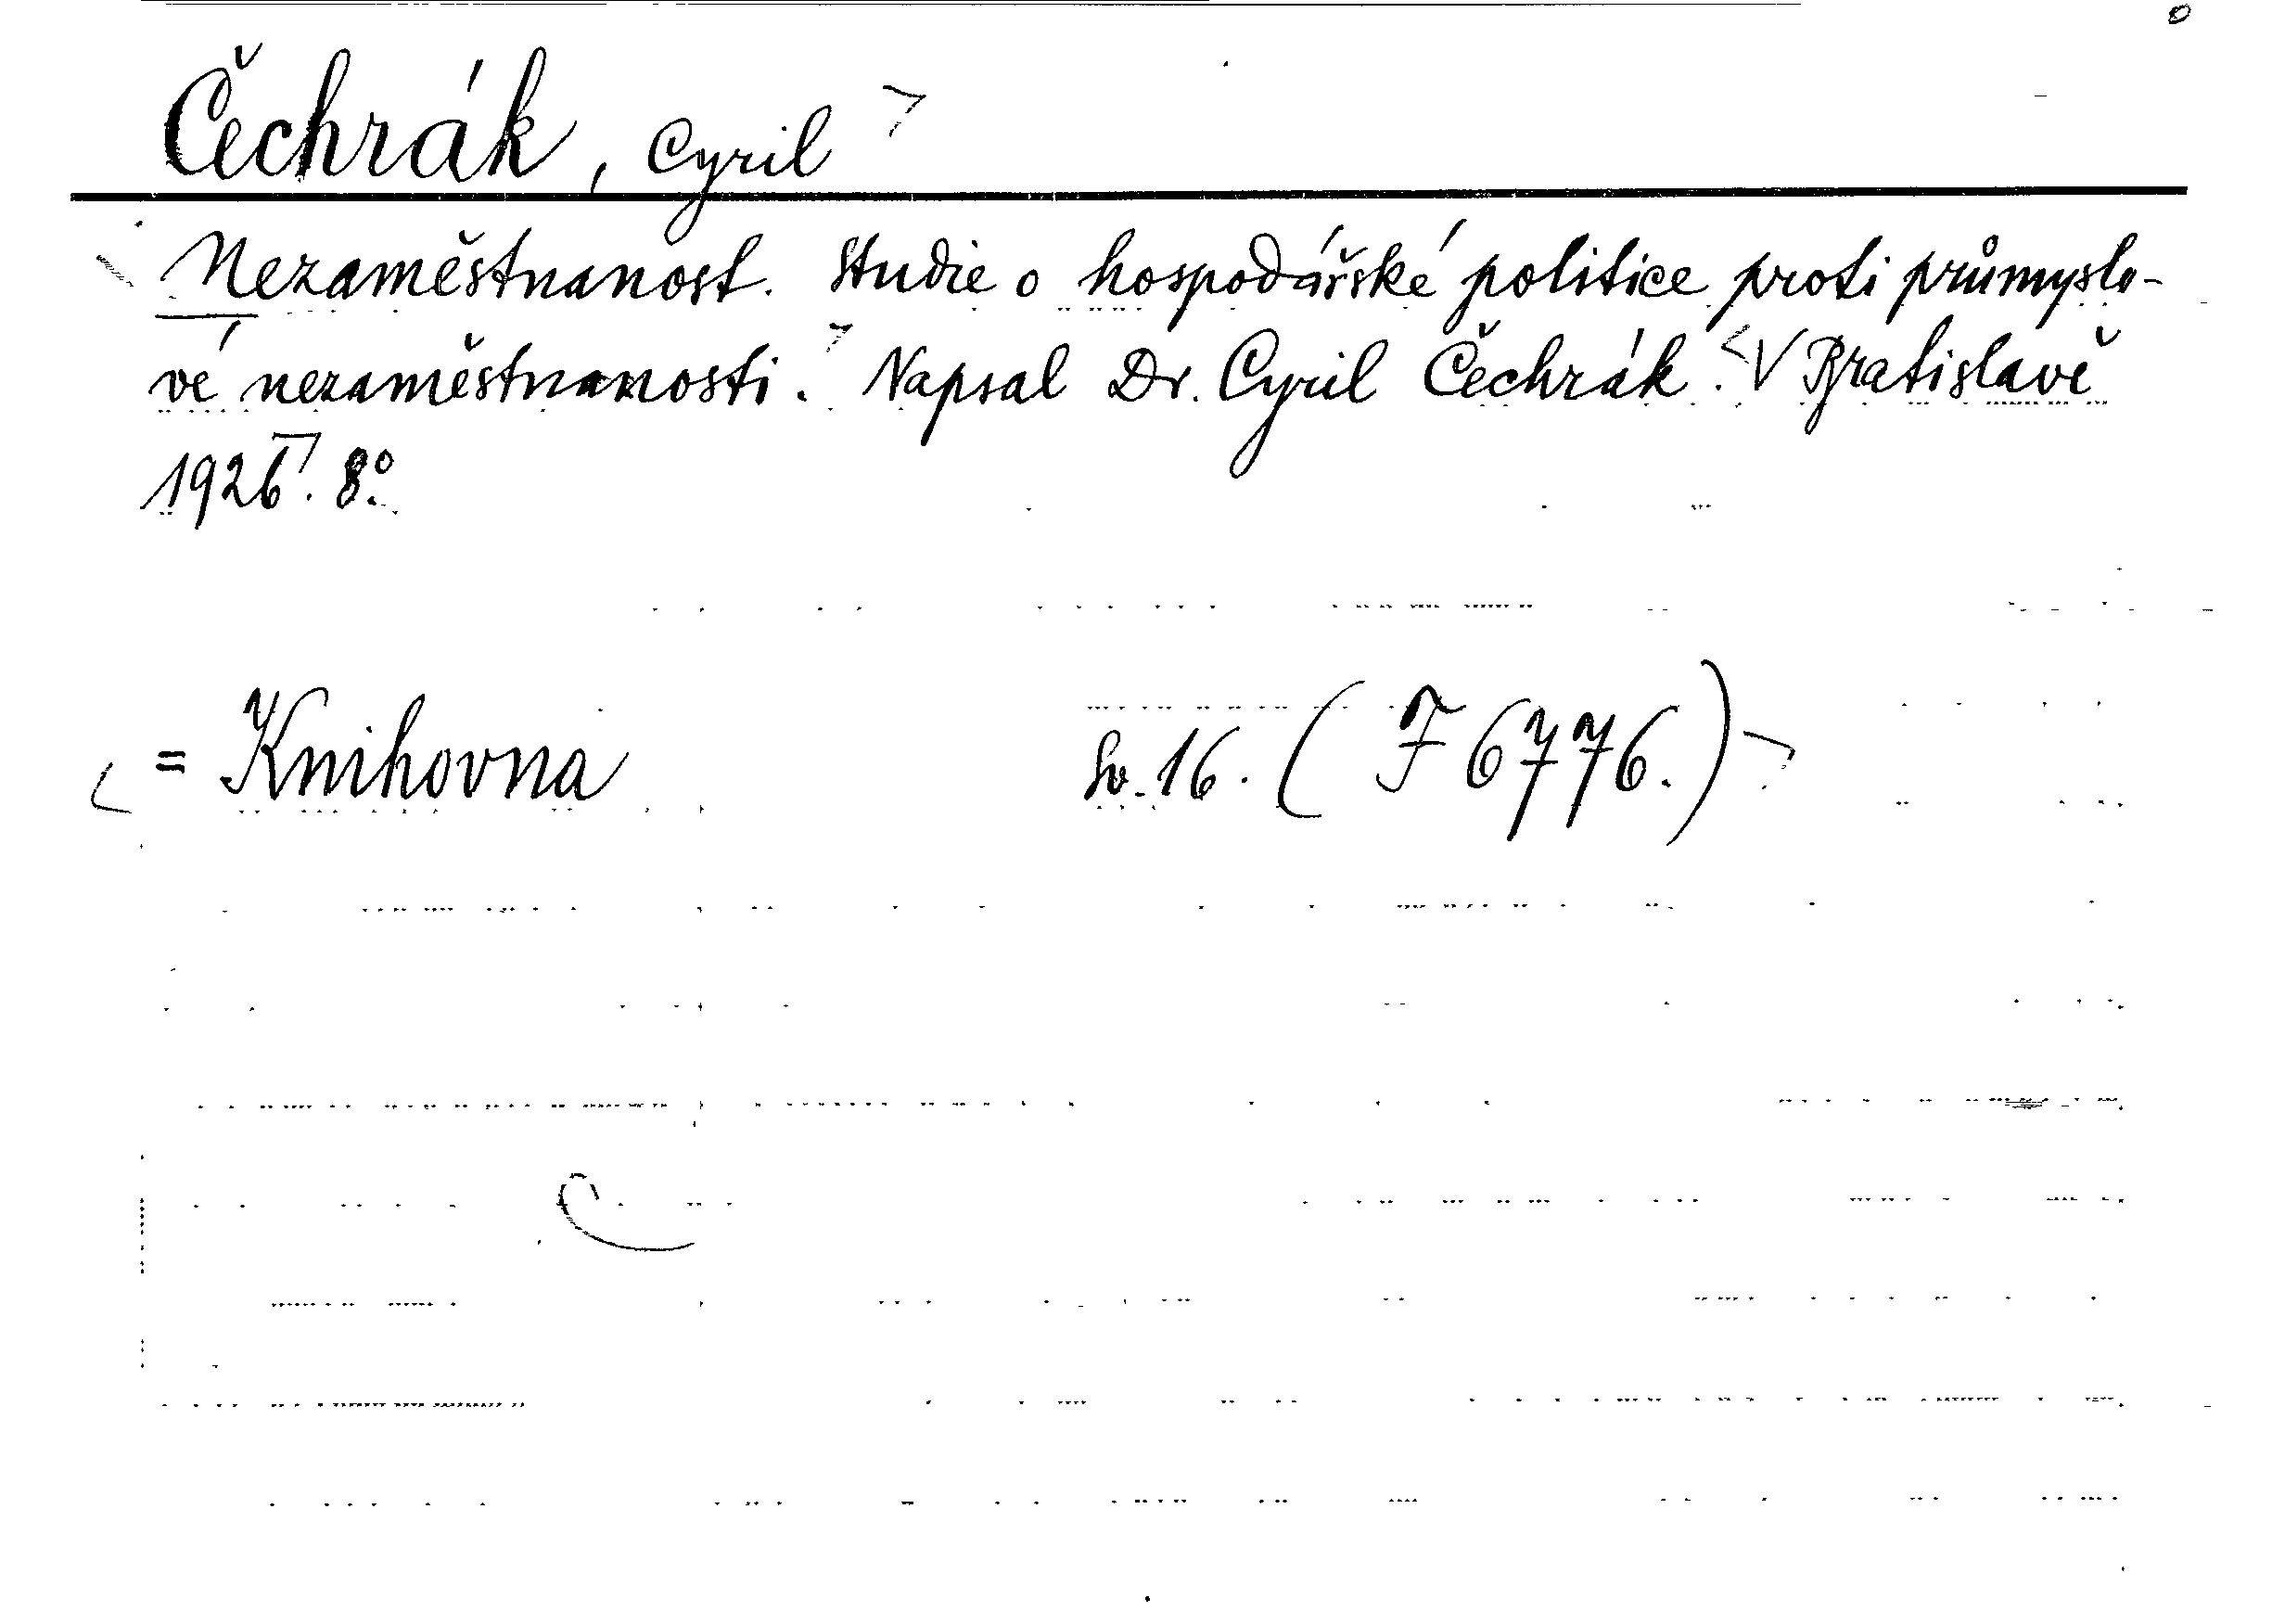 Čechrák, Cyril
Nezaměstnanost. Studie o hospodářské politice proti průmyslo-
vé nezaměstnanosti. Napsal Dr. Cyril Čechrák. V Bratislavě
1926. 8°.
= Knihovna Sv. 16. (F 6776.)